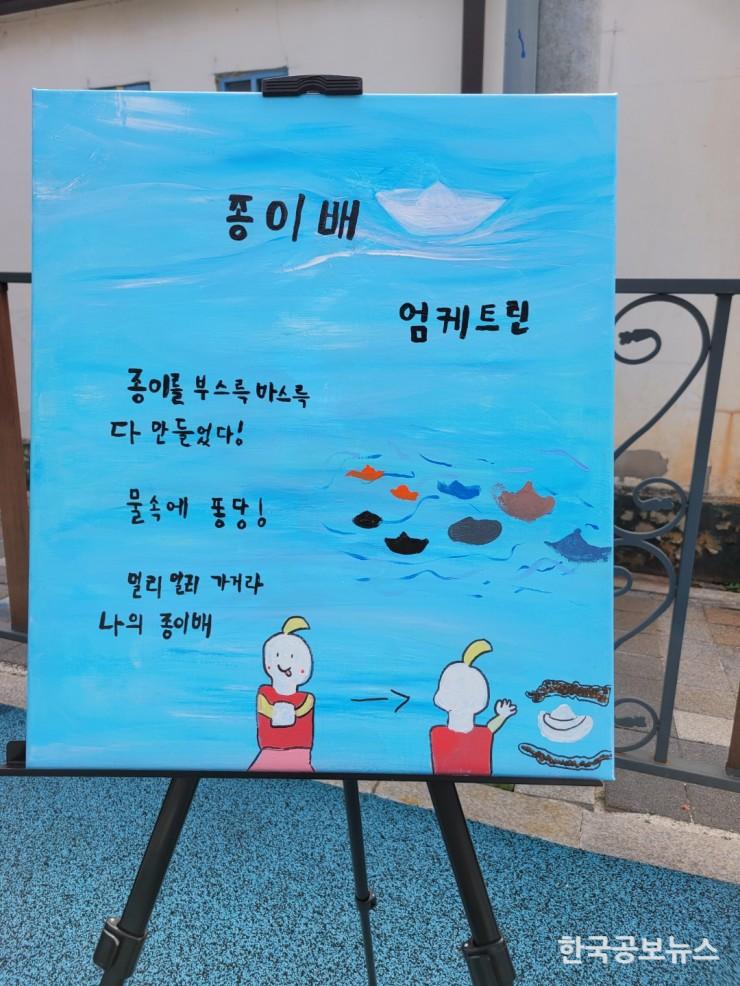 종이배
엄케트린
종이를 부스륵 바스륵
다 만들었다!
물속에 퐁당!
멀리 멀리 가거라
나의 종이배
한국공보뉴스